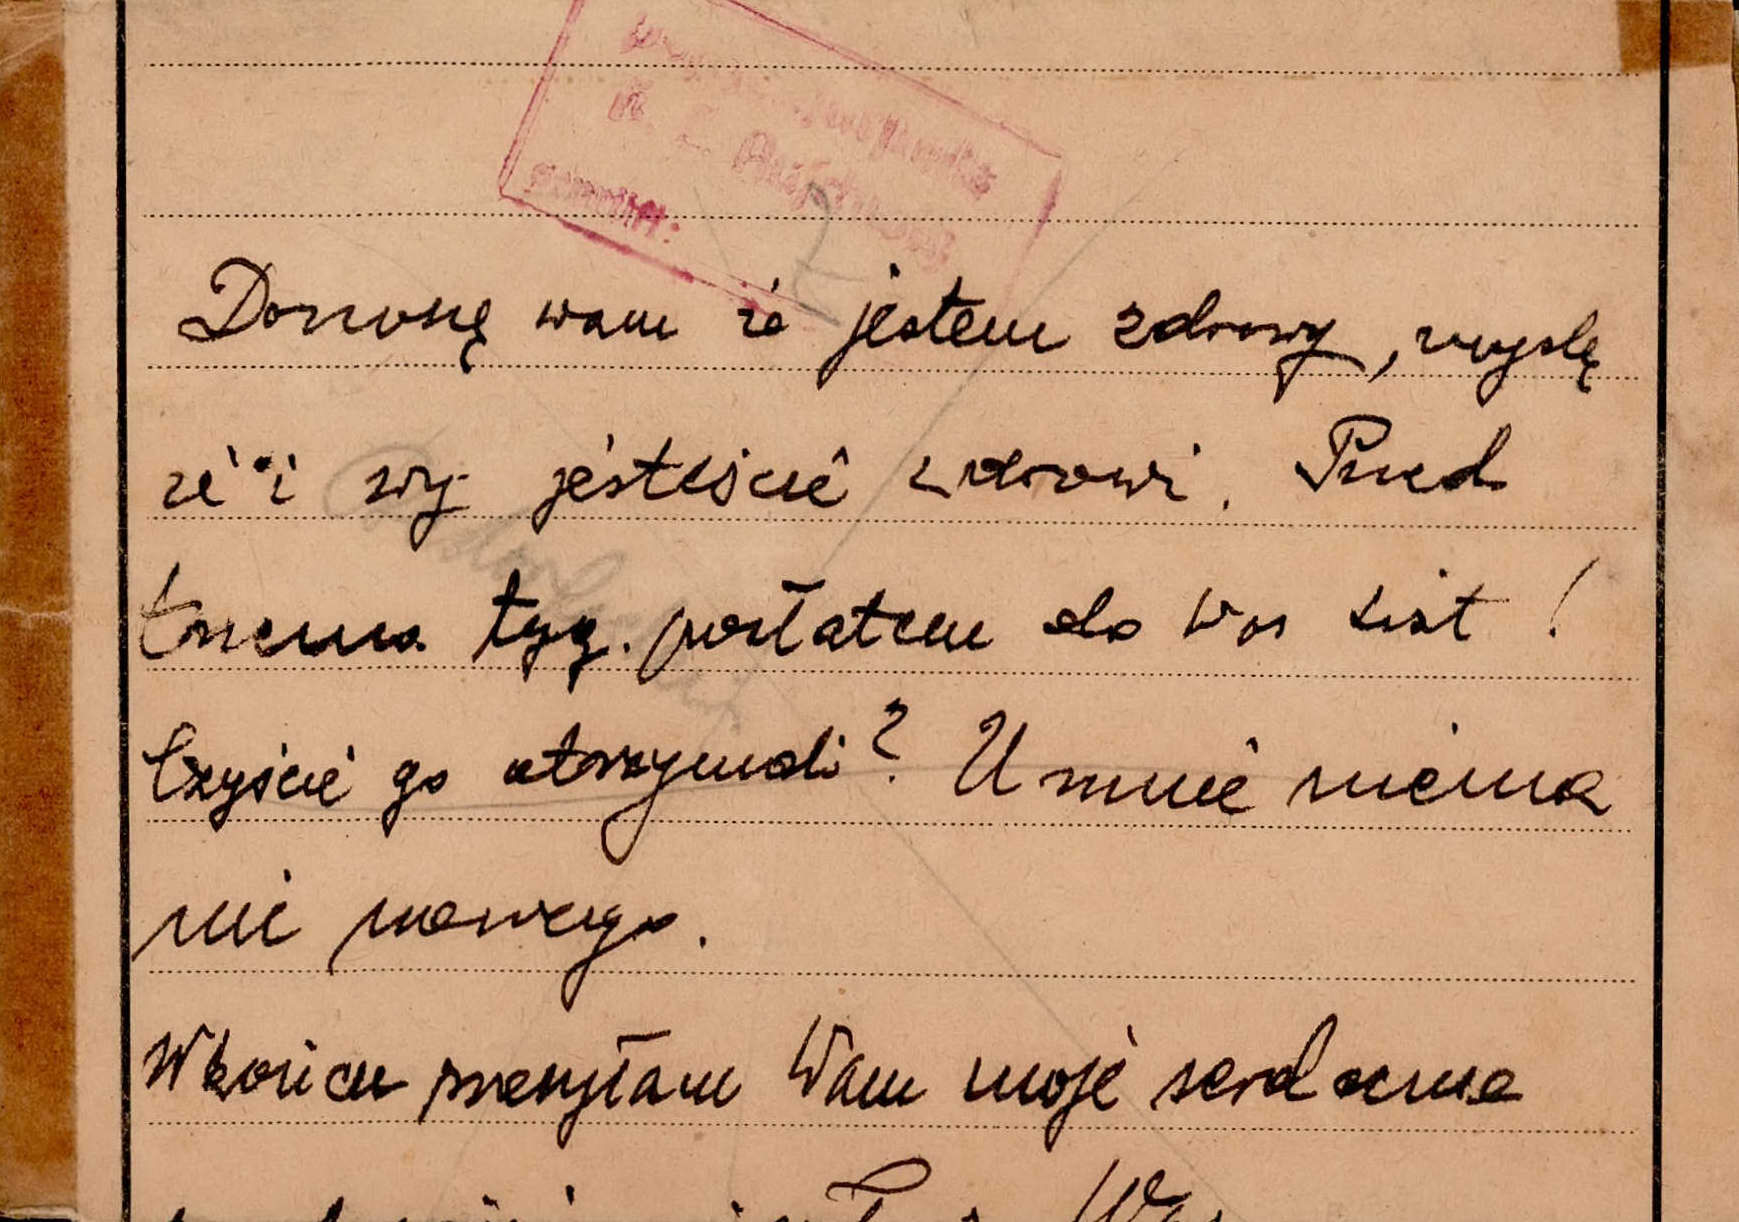 K. L. Auschwitz
Donoszę wam że jestem zdrowy, myślę
że i wy jesteście zdrowi. Przed
trzema tyg. posłałem do Was list!
Czyście go otrzymali? U mnie niema
nic nowego.
Wkońcu przesyłam Wam moje serdeczne